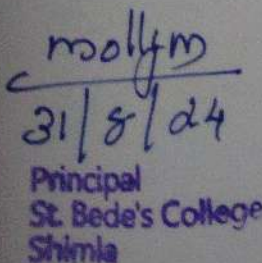 mollym
31/8/24
Principal
St. Bede's College
Shimla